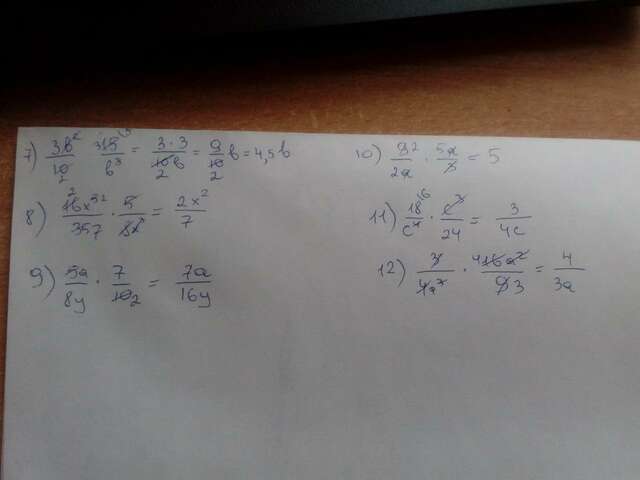 7) 3b²/10 · 15/b³ = 3·3/2b = 9/2 b = 4,5 b
8) 16x³/35 · 5/8x = 2x²/7
9) 5a/8y · 7/10 = 7a/16y
10) 2/2a · 5a = 5
11) 18/c⁴ · c³/24 = 3/4c
12) 3/4a³ · 16a²/9 = 4/3a